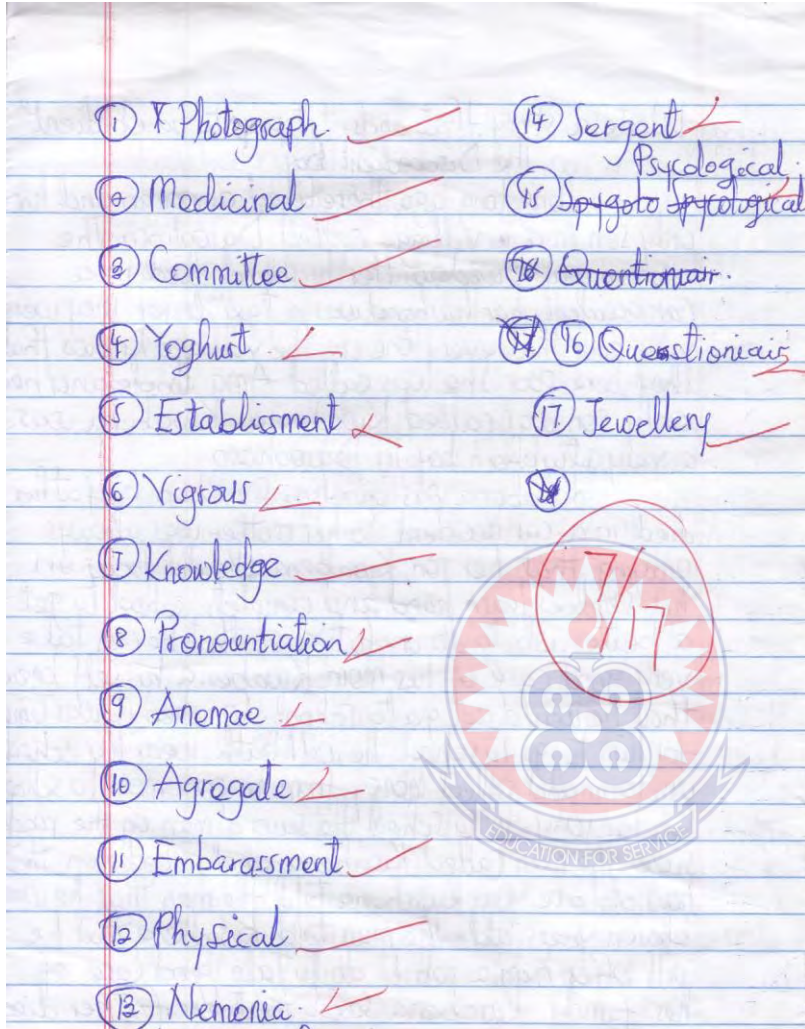 ① Photograph
② Medicinal
③ Committee
④ Yoghurt
⑤ Establissment
⑥ Vigrous
⑦ Knowledge
⑧ Pronountiation
⑨ Anemae
⑩ Agregate
⑪ Embarassment
⑫ Physical
⑬ Nemonia
⑭ Sergent
Psycological
⑮ Spygoto Spycological
⑯ Questioniars
⑰ Jewellery
7/17
EDUCATION FOR SERVICE